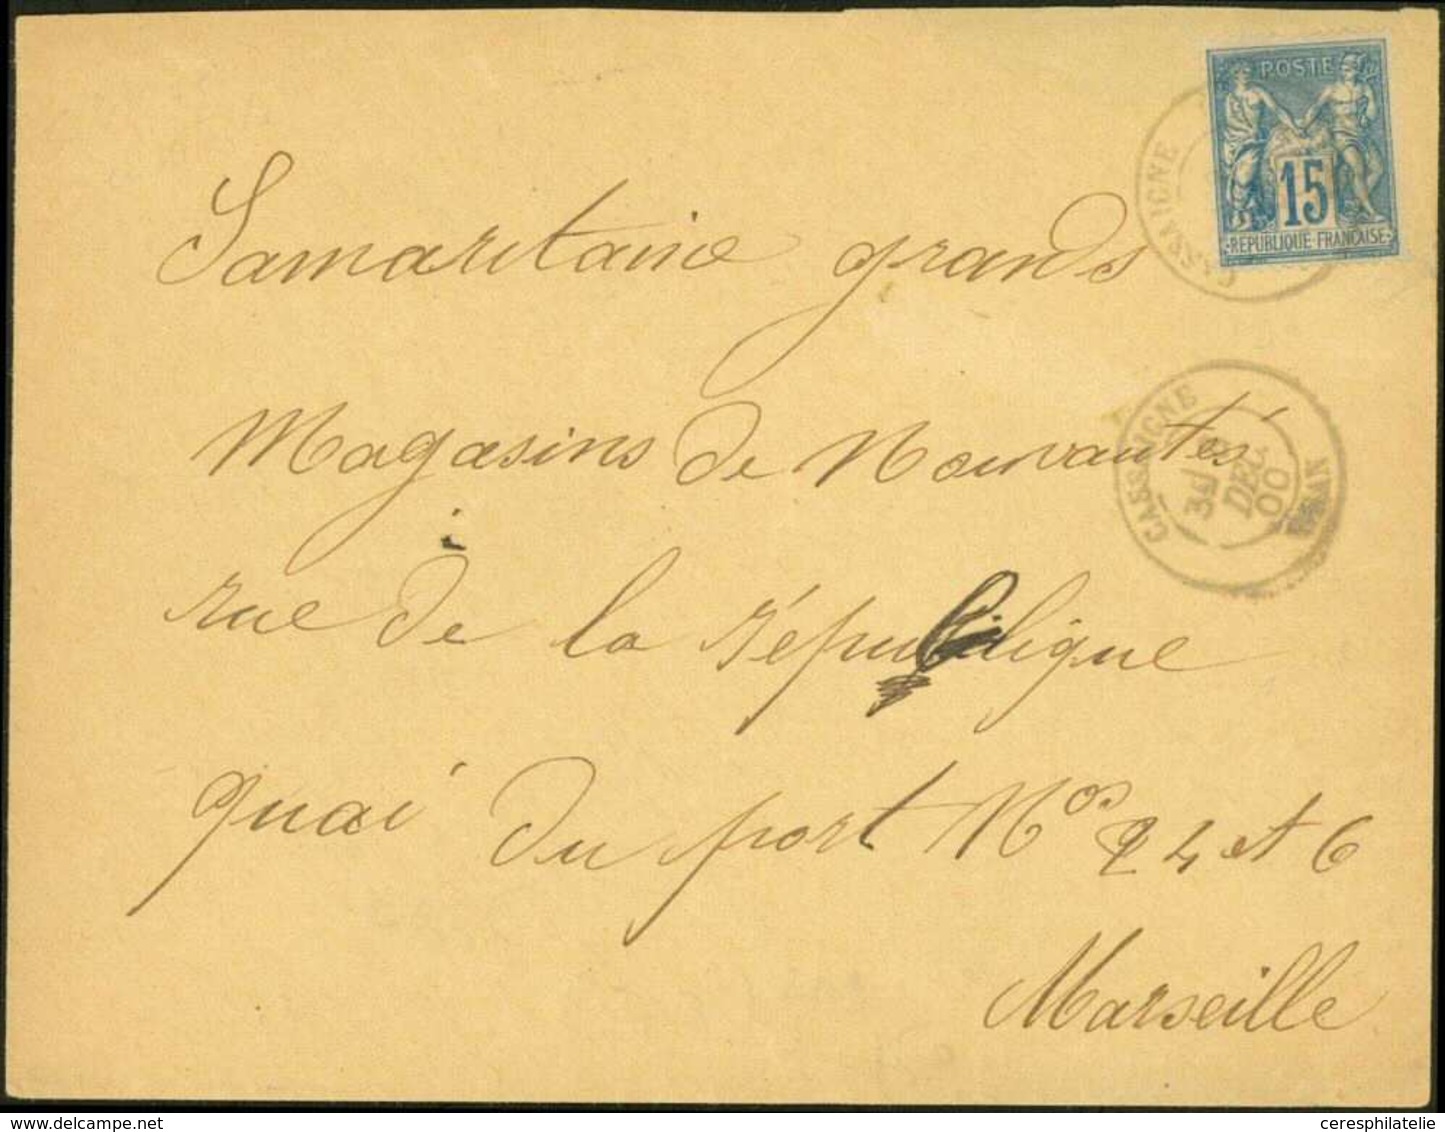 POSTE
15
REPUBLIQUE FRANCAISE
CASSAIGNE
Samaritaine grands
Magasins de Nouvautés
CASSAIGNE
3E
DEC
00
rue de la République
quai du port Nos 2 4 et 6
Marseille
delcampe.net
ceresphilatelie